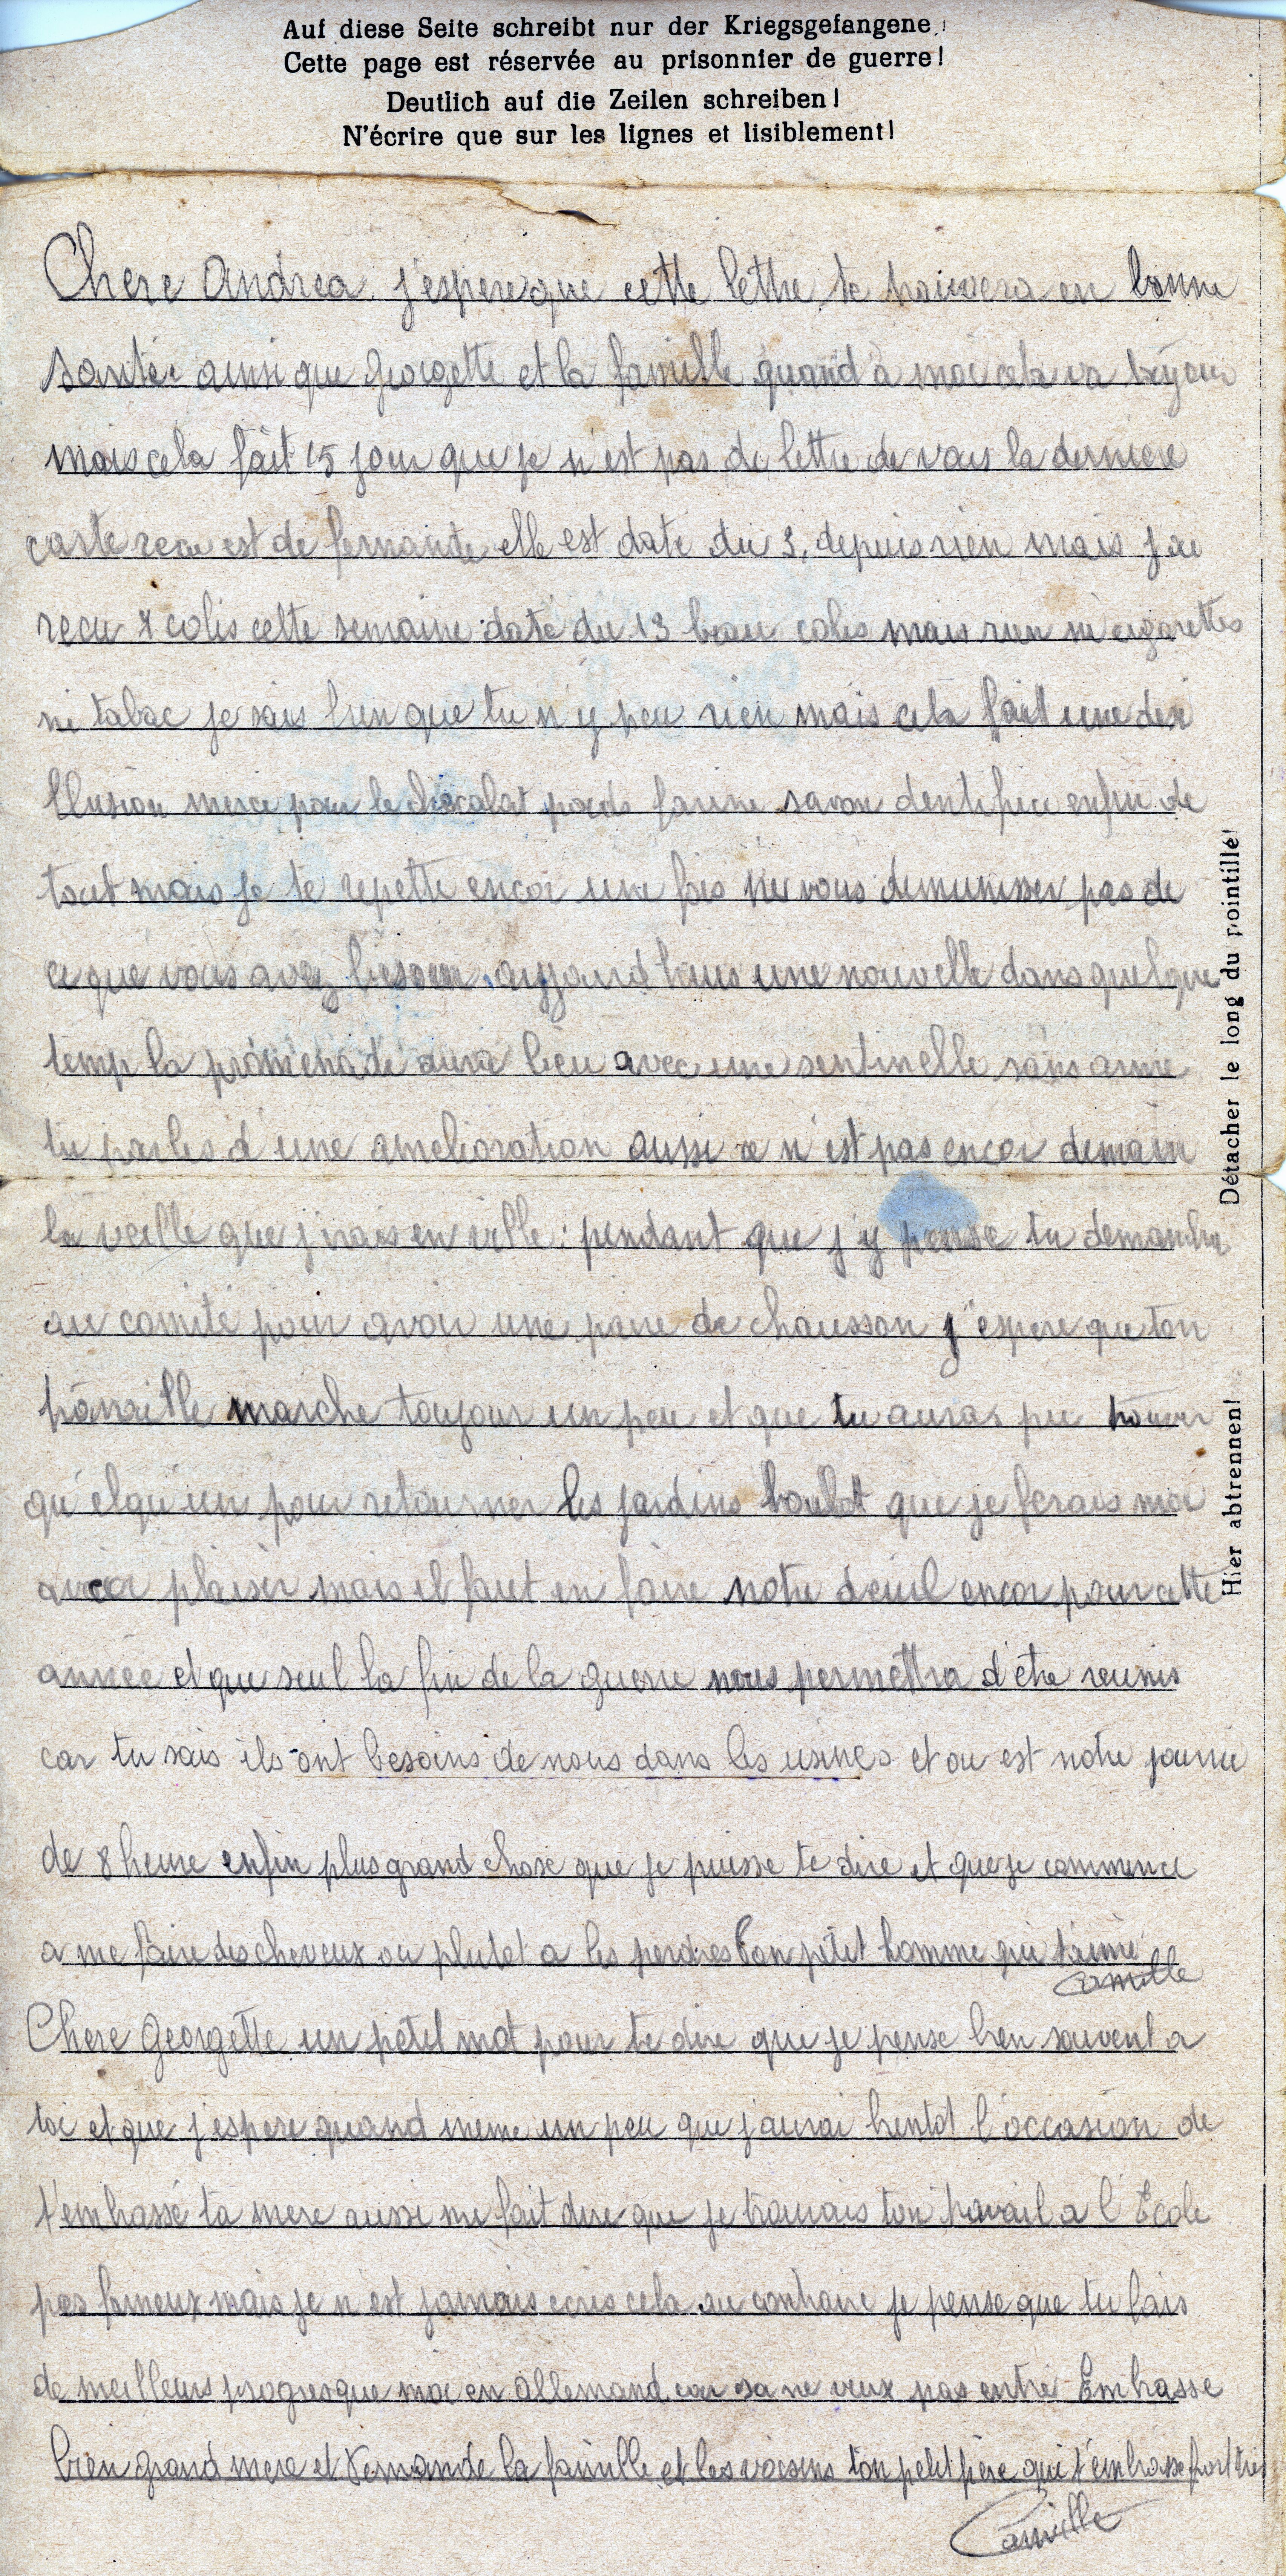 Auf diese Seite schreibt nur der Kriegsgefangene!
Cette page est réservée au prisonnier de guerre!
Deutlich auf die Zeilen schreiben!
N'écrire que sur les lignes et lisiblement!
Chere Andrea. j'espere que cette lettre te trouvera en bonne
santée ainsi que georgette et la famille quand à moi cela va
mais cela fait 15 jour que je n'est pas de lettre de vous la derniere
carte recu est de fernande elle est date du 3, depuis rien mais j'ai
recu colis cette semaine daté du 13 beau colis mais rien ni cigarettes
ni tabac je sais bien que tu n'y peu rien mais cela fait une desi
llusion merci pour le chocolat farine savon dentifrice enfin de
tout mais je te repette encor une fois ne vous demunisser pas de
ce que vous avez besoin. aujourd huis une nouvelle dans quelque
temp la promenade aura lieu avec une sentinelle sans arme
tu parles d'une amelioration aussi ce n'est pas encor demain
la veille que j'irais en ville: pendant que j'y pense tu demandra
au comité pour avoir une paire de chausson j'espere que ton
marche toujour un peu et que tu auras pu trouver
qu'elqu'un pour retourner les jardins boulot que je ferais moi
avec plaisir mais il faut en faire notre deuil encor pour cette
année et que seul la fin de la guerre nous permettra d'etre reunis
car tu sais ils ont besoins de nous dans les usines et ou est notre journé
de 8 heure enfin plus grand chose que je puisse te dire et que je commence
a me faire des cheveux ou plutot a les perdres ton petit homme qui t'aime
Camille
Chere Georgette un petit mot pour te dire que je pense bien souvent a
toi et que j'espere quand meme un peu que j'aurai bentot l'occasion de
t'embassé ta mere aussi me fait dire que je trouvais ton travail a l'École
pas fameux mais je n'est jamais ecris cela au contraire je pense que tu fais
de meilleurs progres que moi en allemand car sa ne veux pas entré Embrasse
bien grand mere et Fernande la famille et les voisins ton petit père qui t'embrasse fort
Camille
Détacher le long du pointillé!
Hier abtrennen!